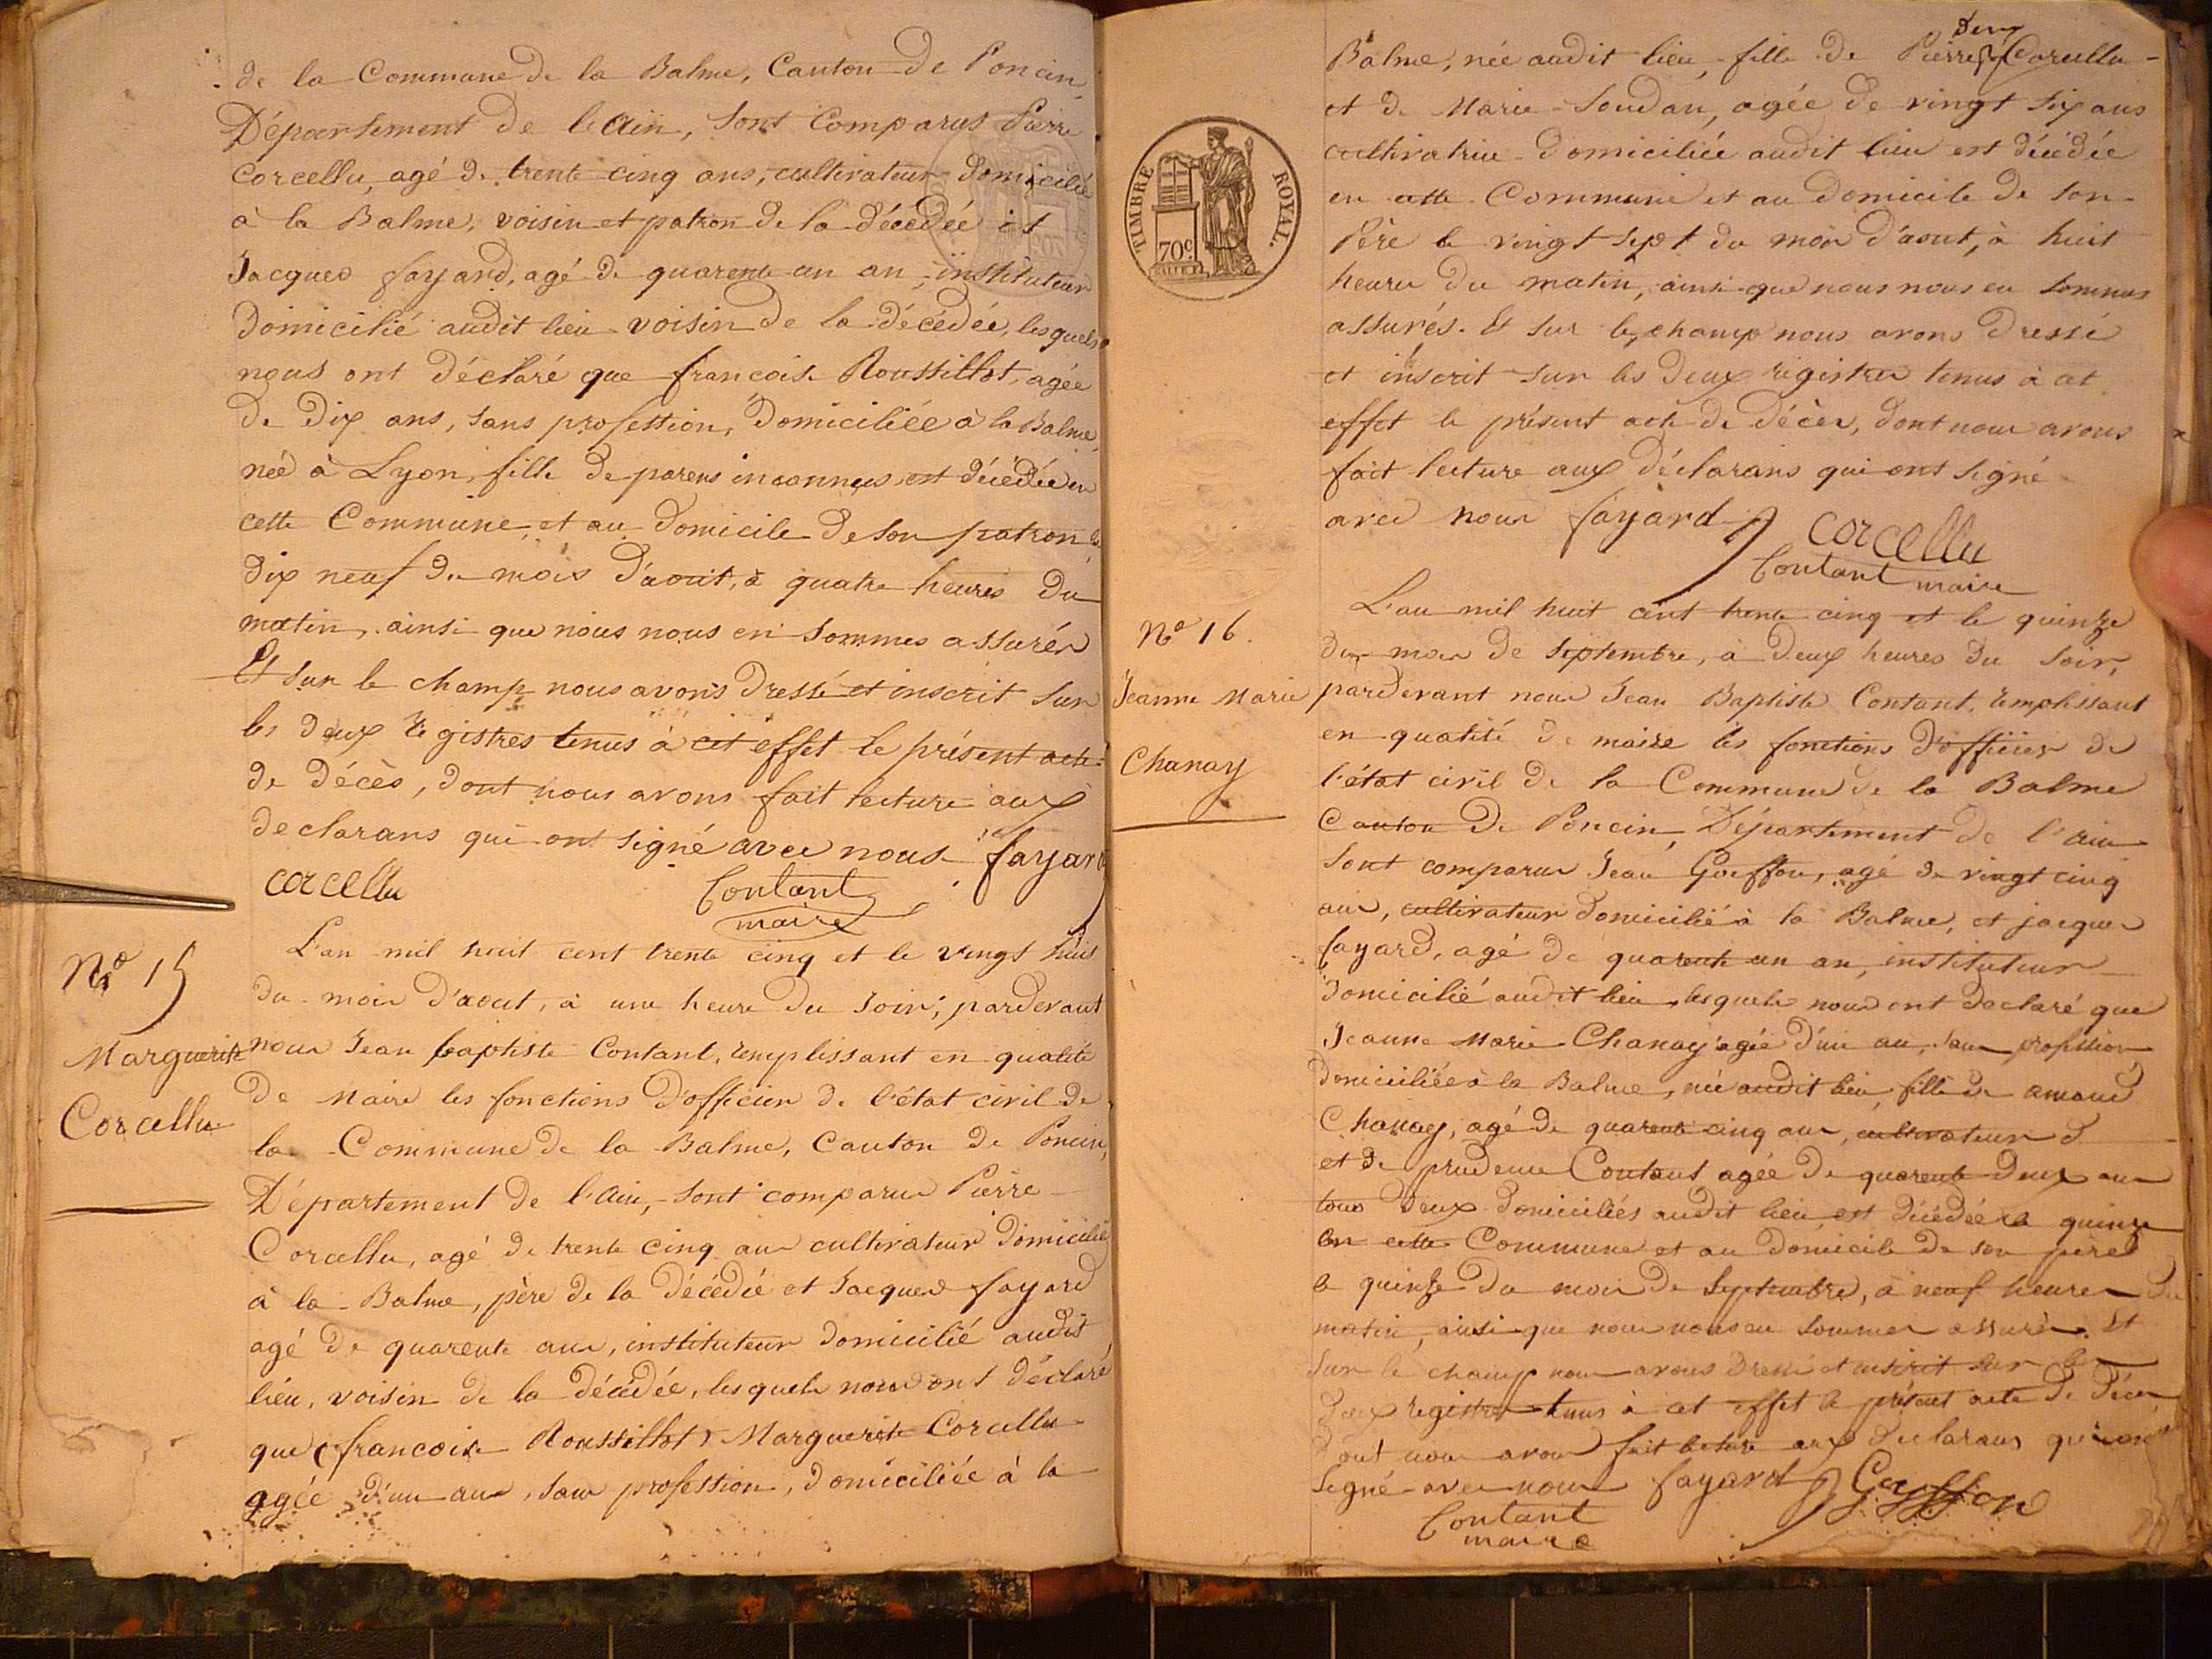 de la Commune de la Balme, Canton de Poncin,
Département de l'Ain, sont comparus Pierre
Corcellu, agé de trente cinq ans, cultivateur domicilié
à la Balme, voisin et patron de la décédée et
Jacques fayard, agé de quarente un an, instituteur
domicilié audit lieu voisin de la décédée, lesquels
nous ont déclaré que francoise Roussillot, agée
de dix ans, sans profession, domiciliée à la Balme,
née à Lyon, fille de parens inconnus, est décédée en
cette Commune, et au domicile de son patron le
dix neuf du mois d'aout, à quatre heures du
matin, ainsi que nous nous en sommes assurés
Et sur le champ nous avons dressé et inscrit sur
les deux registres tenus à cet effet le présent acte
de décès, dont nous avons fait lecture aux
declarans qui ont signé avec nous fayard
corcellu Contant
maire
L'an mil huit cent trente cinq et le vingt huit
du mois d'aout, à une heure du soir, pardevant
nous Jean baptiste Contant, remplissant en qualité
de Maire les fonctions d'officier de l'état civil de
la Commune de la Balme, Canton de Poncin,
Département de l'Ain, sont comparus Pierre
Corcellu, agé de trente cinq ans cultivateur domicilié
à la Balme, père de la décédée et Jacques fayard
agé de quarente ans, instituteur domicilié audit
lieu, voisin de la décédée, lesquels nous ont déclaré
que (francoise Roussillot) Marguerite Corcellu
agée d'un an, sans profession, domiciliée à la
No 15
Marguerite
Corcellu
Balme, née audit lieu, fille de Pierre Corcellu
et de Marie Soudan, agée de vingt six ans
cultivatrice domiciliée audit lieu est décédée
en cette Commune et au domicile de son
Père le vingt sept du mois d'aout, à huit
heures du matin, ainsi que nous nous en sommes
assurés. Et sur le champ nous avons dressé
et inscrit sur les deux registres tenus à cet
effet le présent acte de décès, dont nous avons
fait lecture aux déclarans qui ont signé
avec nous fayard corcellu
Contant maire
TIMBRE ROYAL.
70c.
No 16.
Jeanne Marie
Chanay
L'an mil huit cent trente cinq et le quinze
du mois de Septembre, à deux heures du soir,
pardevant nous Jean Baptiste Contant, remplissant
en qualité de maire les fonctions d'officier de
l'état civil de la Commune de la Balme
Canton de Poncin, Département de l'ain
sont comparus Jean Goiffon, agé de vingt cinq
ans, cultivateur domicilié à la Balme, et jacques
fayard, agé de quarente un an, instituteur
domicilié audit lieu, lesquels nous ont declaré que
Jeanne Marie Chanay agée d'un an, sans profession
domiciliée à la Balme, née audit lieu, fille de
Chanay, agé de quarente cinq ans, cultivateur
et de prudence Contant agée de quarente deux ans
tous deux domiciliés audit lieu, est décédée le quinze
en cette Commune et au domicile de son père
le quinze du mois de Septembre, à neuf heures du
matin, ainsi que nous nous en sommes assurés. Et
sur le champ nous avons dressé et inscrit sur les
deux registres tenus à cet effet le présent acte de décès
dont nous avons fait lecture aux declarans qui ont
signé avec nous fayard Goiffon
Contant
maire